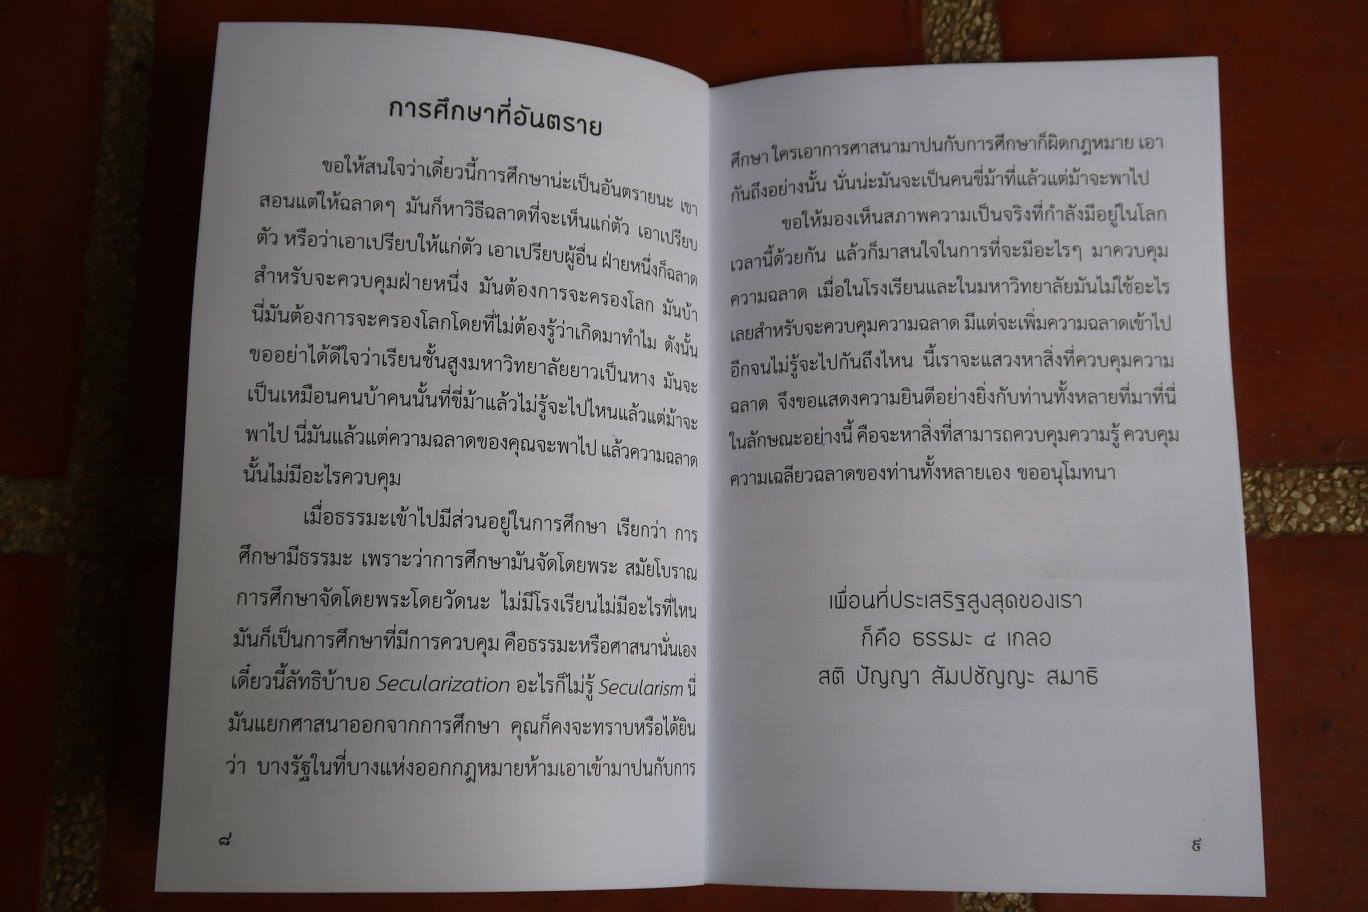 การศึกษาที่อันตราย
ขอให้สนใจว่าเดี๋ยวนี้การศึกษาน่ะเป็นอันตรายนะ เขา
สอนแต่ให้ฉลาดๆ มันก็หาวิธีฉลาดที่จะเห็นแก่ตัว เอาเปรียบ
ตัว หรือว่าเอาเปรียบให้แก่ตัว เอาเปรียบผู้อื่น ฝ่ายหนึ่งก็ฉลาด
สำหรับจะควบคุมฝ่ายหนึ่ง มันต้องการจะครองโลก มันบ้า
นี่มันต้องการจะครองโลกโดยที่ไม่ต้องรู้ว่าเกิดมาทำไม ดังนั้น
ขออย่าได้ดีใจว่าเรียนชั้นสูงมหาวิทยาลัยยาวเป็นหาง มันจะ
เป็นเหมือนคนบ้าคนนั้นที่ขี่ม้าแล้วไม่รู้จะไปไหนแล้วแต่ม้าจะ
พาไป นี่มันแล้วแต่ความฉลาดของคุณจะพาไป แล้วความฉลาด
นั้นไม่มีอะไรควบคุม
เมื่อธรรมะเข้าไปมีส่วนอยู่ในการศึกษา เรียกว่า การ
ศึกษามีธรรมะ เพราะว่าการศึกษามันจัดโดยพระ สมัยโบราณ
การศึกษาจัดโดยพระโดยวัดนะ ไม่มีโรงเรียนไม่มีอะไรที่ไหน
มันก็เป็นการศึกษาที่มีการควบคุม คือธรรมะหรือศาสนานั่นเอง
เดี๋ยวนี้ลัทธิบ้าบอ Secularization อะไรก็ไม่รู้ Secularism นี่
มันแยกศาสนาออกจากการศึกษา คุณก็คงจะทราบหรือได้ยิน
ว่า บางรัฐในที่บางแห่งออกกฎหมายห้ามเอาเข้ามาปนกับการ
๘
ศึกษา ใครเอาการศาสนามาปนกับการศึกษาก็ผิดกฎหมาย เอา
กันถึงอย่างนั้น นั่นน่ะมันจะเป็นคนขี่ม้าที่แล้วแต่ม้าจะพาไป
ขอให้มองเห็นสภาพความเป็นจริงที่กำลังมีอยู่ในโลก
เวลานี้ด้วยกัน แล้วก็มาสนใจในการที่จะมีอะไรๆ มาควบคุม
ความฉลาด เมื่อในโรงเรียนและในมหาวิทยาลัยมันไม่ใช้อะไร
เลยสำหรับจะควบคุมความฉลาด มีแต่จะเพิ่มความฉลาดเข้าไป
อีกจนไม่รู้จะไปกันถึงไหน นี้เราจะแสวงหาสิ่งที่ควบคุมความ
ฉลาด จึงขอแสดงความยินดีอย่างยิ่งกับท่านทั้งหลายที่มาที่นี่
ในลักษณะอย่างนี้ คือจะหาสิ่งที่สามารถควบคุมความรู้ ควบคุม
ความเฉลียวฉลาดของท่านทั้งหลายเอง ขออนุโมทนา
เพื่อนที่ประเสริฐสูงสุดของเรา
ก็คือ ธรรมะ ๔ เกลอ
สติ ปัญญา สัมปชัญญะ สมาธิ
๙